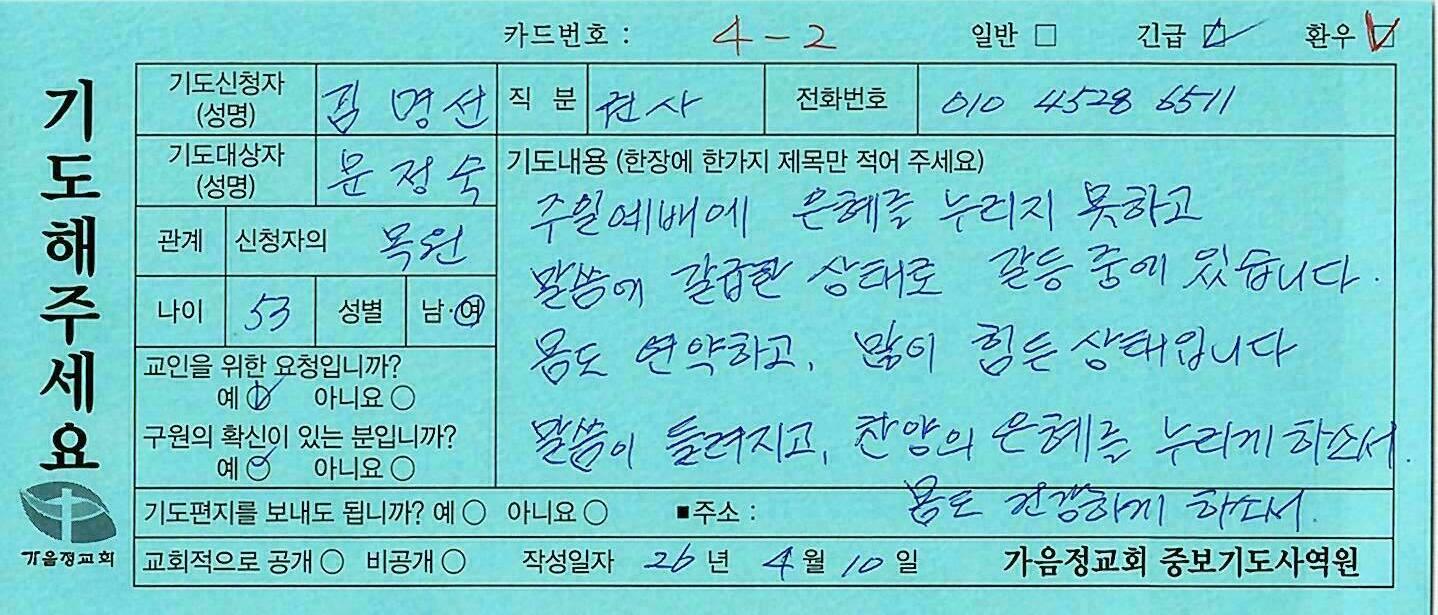 카드번호 : 4-2 일반 □ 긴급 ☑ 환우 ☑
기도해주세요
기도신청자 (성명) 김명선 직 분 권사 전화번호 010 4528 6511
기도대상자 (성명) 문정숙
기도내용 (한장에 한가지 제목만 적어 주세요)
주일예배에 은혜를 누리지 못하고
관계 신청자의 목원
말씀에 갈급한 상태로 갈등 중에 있습니다.
나이 53 성별 남·여
몸도 연약하고, 많이 힘든 상태입니다
교인을 위한 요청입니까?
예 ○ 아니요 ○
말씀이 들려지고, 찬양의 은혜를 누리게 하소서.
구원의 확신이 있는 분입니까?
예 ○ 아니요 ○
몸도 건강하게 하소서.
기도편지를 보내도 됩니까? 예 ○ 아니요 ○ ■주소 :
가음정교회
교회적으로 공개 ○ 비공개 ○ 작성일자 26 년 4 월 10 일 가음정교회 중보기도사역원